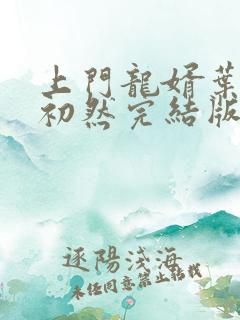 上門龍婿葉
初然完結版
逐陽淺海
未经同意禁止转载